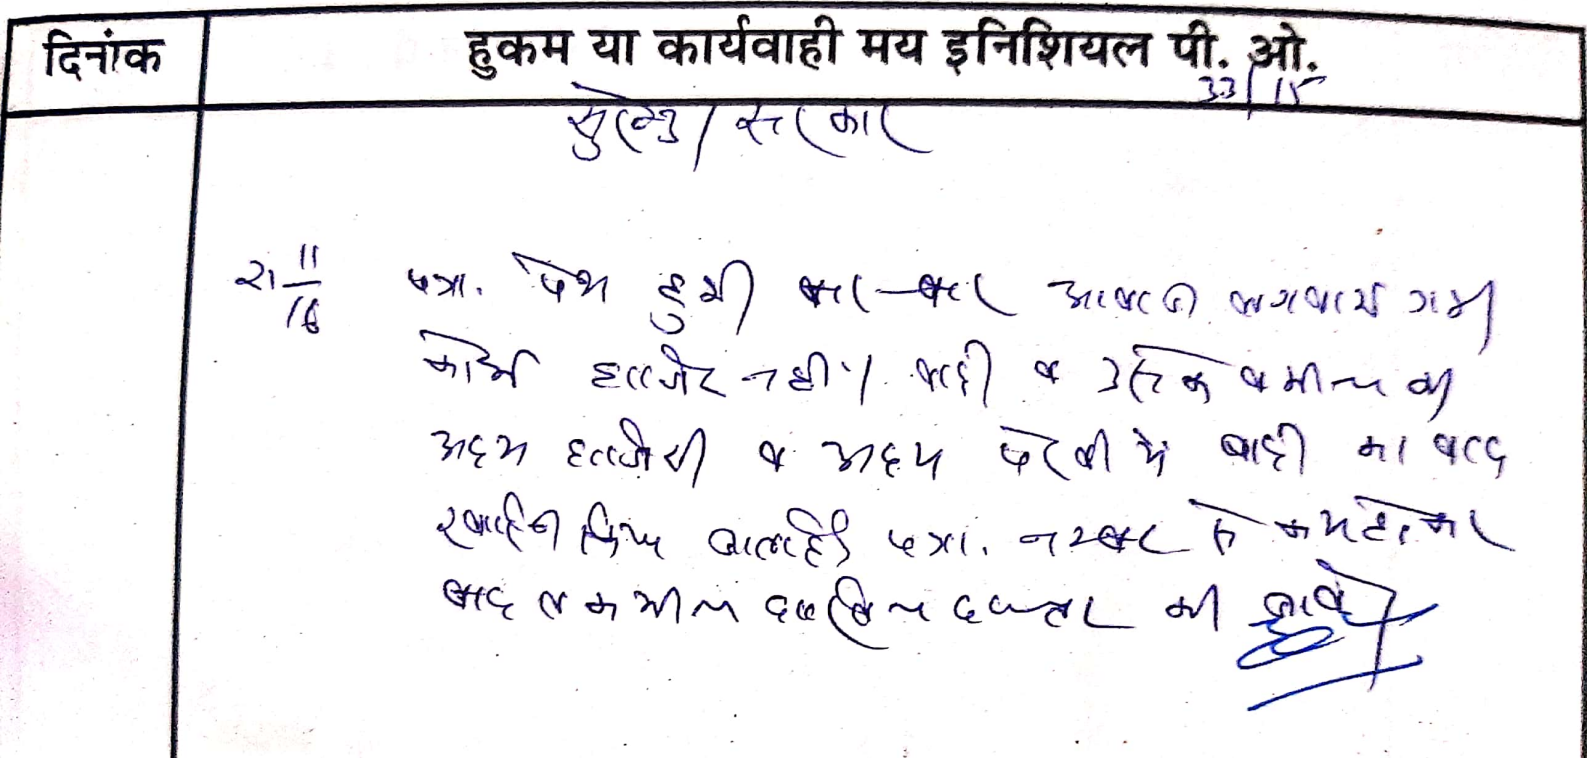 दिनांक
हुकम या कार्यवाही मय इनिशियल पी. ओ.
33/15
सुरेन्द्र / सरकार
21 11/16 पत्रा. पेश हुयी बार-बार आवाज लगवायी गयी
कोई हाजीर नही। वादी व उसके वकील की
अदम हाजीरी व अदम पैरवी में वादी का वाद
खारिज किया जाता है। पत्रा. नम्बर से कम होकर
बाद तकमील दाखिल दफ्तर की जावे